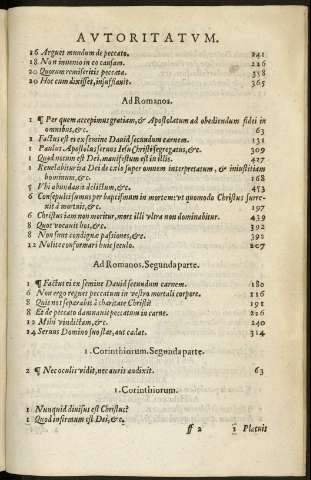 AVTORITATVM.
16 Arguet mundum de peccato. 241
18 Non inuenio in eo causam. 226
20 Quorum remiseritis peccata. 358
20 Hoc cum dixisset, insufflauit. 365
Ad Romanos.
1 ¶ Per quem accepimus gratiam, & Apostolatum ad obediendum fidei in
omnibus, &c. 63
1 Factus est ex semine Dauid secundum carnem. 131
1 Paulus Apostolus seruus Iesu Christi segregatus, &c. 309
1 Quod notum est Dei, manifestum est in illis. 427
1 Reuelabitur ira Dei de cælo super omnem interpretatum, & iniustitiam
hominum, &c. 168
5 Vbi abundauit delictum, &c. 453
6 Consepulti sumus per baptismum in mortem: vt quomodo Christus surre-
xit à mortuis, &c. 197
6 Christus iam non moritur, mors illi vltra non dominabitur. 439
8 Quos vocauit hos, &c. 392
8 Non sunt condignæ passiones, &c. 391
12 Nolite conformari huic seculo. 207
Ad Romanos. Segunda parte.
1 ¶ Factus ei ex semine Dauid secundum carnem. 180
6 Non ergo regnet peccatum in vestro mortali corpore. 116
8 Quis nos separabit à charitate Christi? 191
8 Et de peccato damnauit peccatum in carne. 226
12 Mihi vindictam, &c. 240
14 Seruus Domino suo stat, aut cadat. 314
1. Corinthiorum. Segunda parte.
2 ¶ Nec oculus vidit, nec auris audixit. 63
1. Corinthiorum.
1 Nunquid diuisus est Christus?
1 Quod infirmum est Dei, &c.
ff 2 1 Placuit